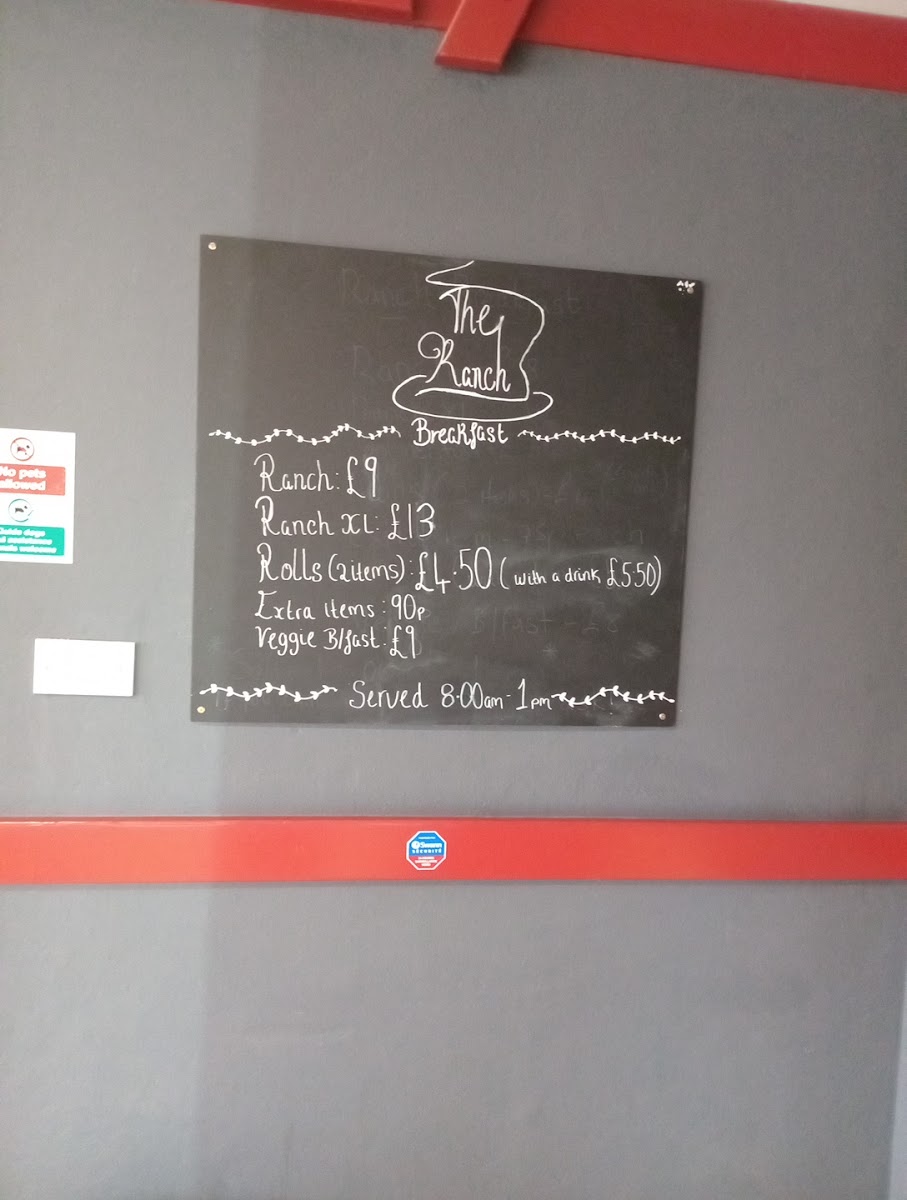 The
Ranch
Breakfast
Ranch: £9
Ranch XL: £13
Rolls (2 items): £4.50 (with a drink £5.50)
Extra items: 90p
Veggie B/fast: £9
Served 8.00am - 1pm
No pets
allowed
Guide dogs
welcome
Swann
SÉCURITÉ